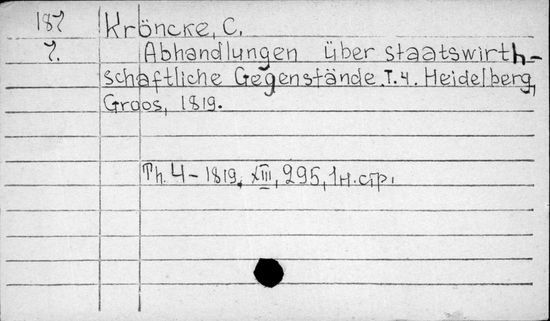 187 Kröncke, C.
7. Abhandlungen über staatswirth-
schaftliche Gegenstände. T.4. Heidelberg,
Groos, 1819.
Th. 4 - 1819, XIII, 295, 1 н. стр.